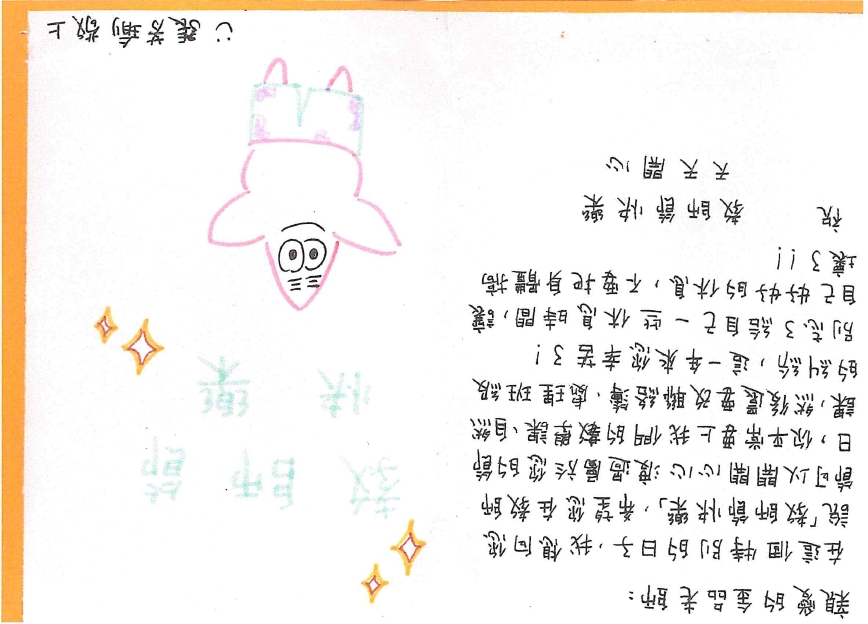 親愛的金品老師：
在這個特別的日子，我想向您
說「教師節快樂」，希望您在教師
節可以開開心心度過屬於您的節
日，你平常要上我們的數學課、自然
課，然後還要改聯絡簿，處理班級
的糾紛，這一年來您辛苦了！
別忘了給自己一些休息時間，讓
自己好好的休息，不要把身體搞
壞了！！
祝 教師節快樂
天天開心
教師節
快樂
張芳瑜敬上